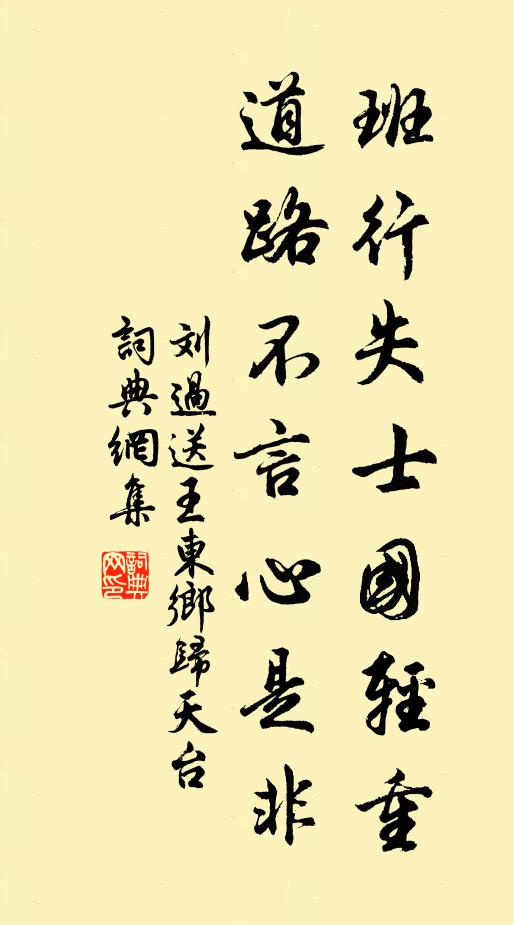 班行失士國輕重
道路不言心是非
刘過送王東鄉歸天台
詞典網集
詞典網印